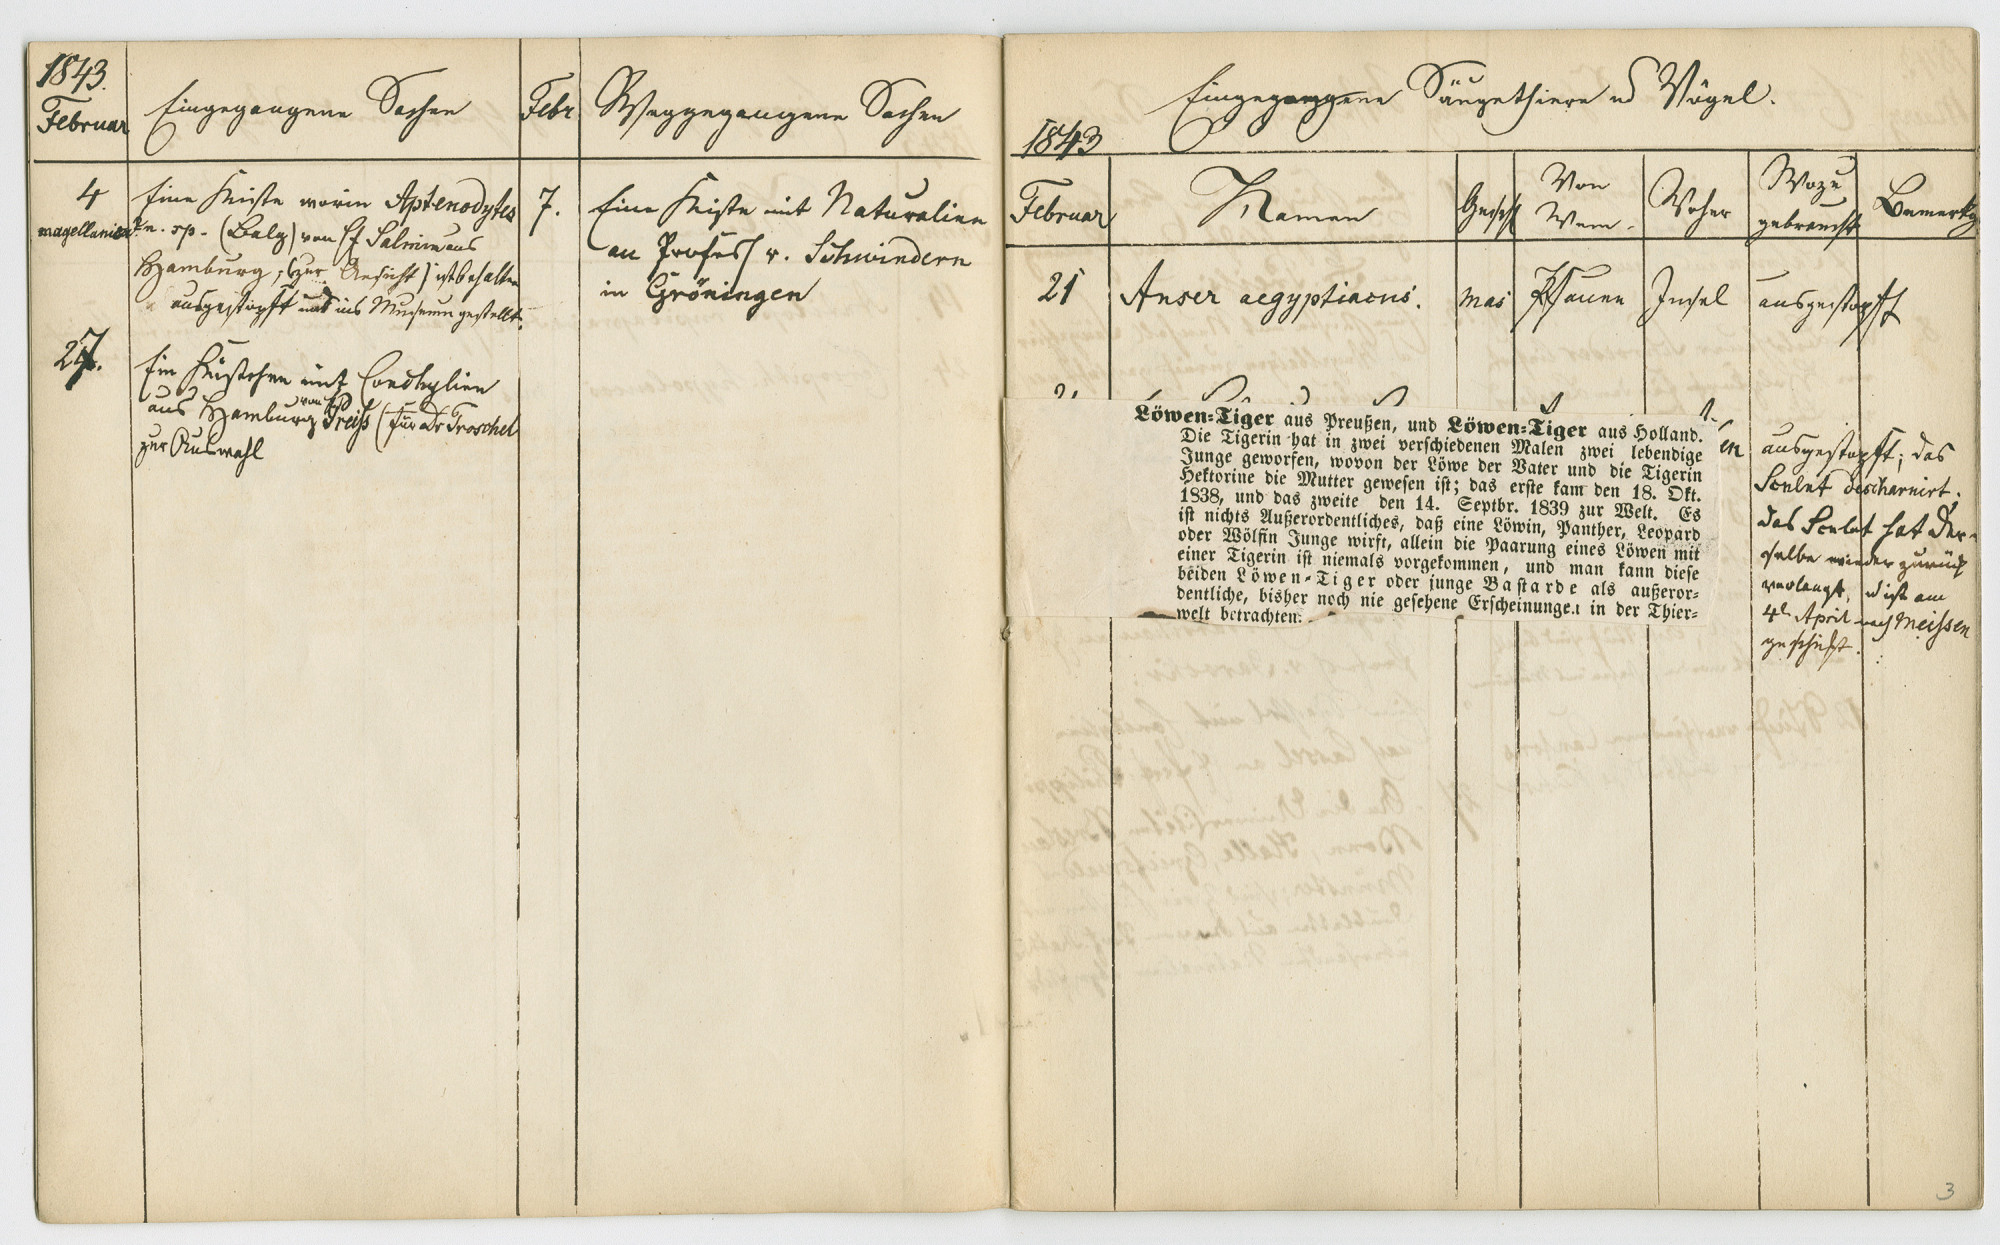 1843.
Februar
Eingegangene Sachen
Febr
Weggegangene Sachen
4
Eine Kiste worin Aptenodytes
magellanica? n. sp. (Balg) von H Salmin aus
Hamburg, (zur Ansicht) ist behalten
ausgestopft und ins Museum gestellt.
27.
Ein Kästchen mit Conchylien
aus Hamburg von H Preiss (für Dr Troschel
zur Auswahl
7.
Eine Kiste mit Naturalien
an Profess v. Schwindern
in Gröningen
Eingegangene Säugethiere ud Vögel.
1843
Februar
Namen
Geschl
Von
Wem.
Woher
Wozu
gebraucht
Bemerkg
21
Anser aegyptiacus.
mas
Pfauen
Insel
ausgestopft
Löwen=Tiger aus Preußen, und Löwen=Tiger aus Holland.
Die Tigerin hat in zwei verschiedenen Malen zwei lebendige
Junge geworfen, wovon der Löwe der Vater und die Tigerin
Hektorine die Mutter gewesen ist; das erste kam den 18. Okt.
1838, und das zweite den 14. Septbr. 1839 zur Welt. Es
ist nichts Außerordentliches, daß eine Löwin, Panther, Leopard
oder Wölfin Junge wirft, allein die Paarung eines Löwen mit
einer Tigerin ist niemals vorgekommen, und man kann diese
beiden Löwen-Tiger oder junge Bastarde als außeror-
dentliche, bisher noch nie gesehene Erscheinungen in der Thier-
welt betrachten.
en
ausgestopft; das
Scelet descharnirt.
das Scelet hat der-
selbe wieder zurück
verlangt, ud ist am
4t April nach Meissen
geschickt.
3